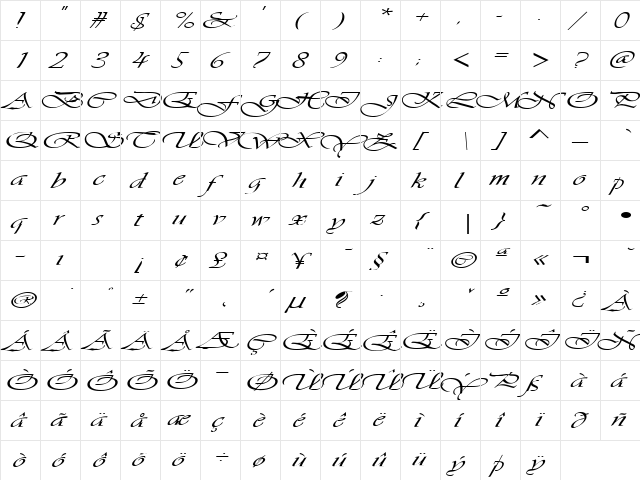 ! " # $ % & ' ( ) * + , - . / 0
1 2 3 4 5 6 7 8 9 : ; < = > ? @
A B C D E F G H I J K L M N O P
Q R S T U V W X Y Z [ \ ] ^ _ `
a b c d e f g h i j k l m n o p
q r s t u v w x y z { | } ~ ° •
– ı ¡ ¢ £ ¤ ¥ ¯ § ¨ © ª « ¬ ¯
® ± ″ ´ µ ¶ · ¸ º » ¿ À
Á Â Ã Ä Å Æ Ç È É Ê Ë Ì Í Î Ï Ñ
Ò Ó Ô Õ Ö – Ø Ù Ú Û Ü Ý Þ ß à á
â ã ä å æ ç è é ê ë ì í î ï ð ñ
ò ó ô õ ö ÷ ø ù ú û ü ý þ ÿ